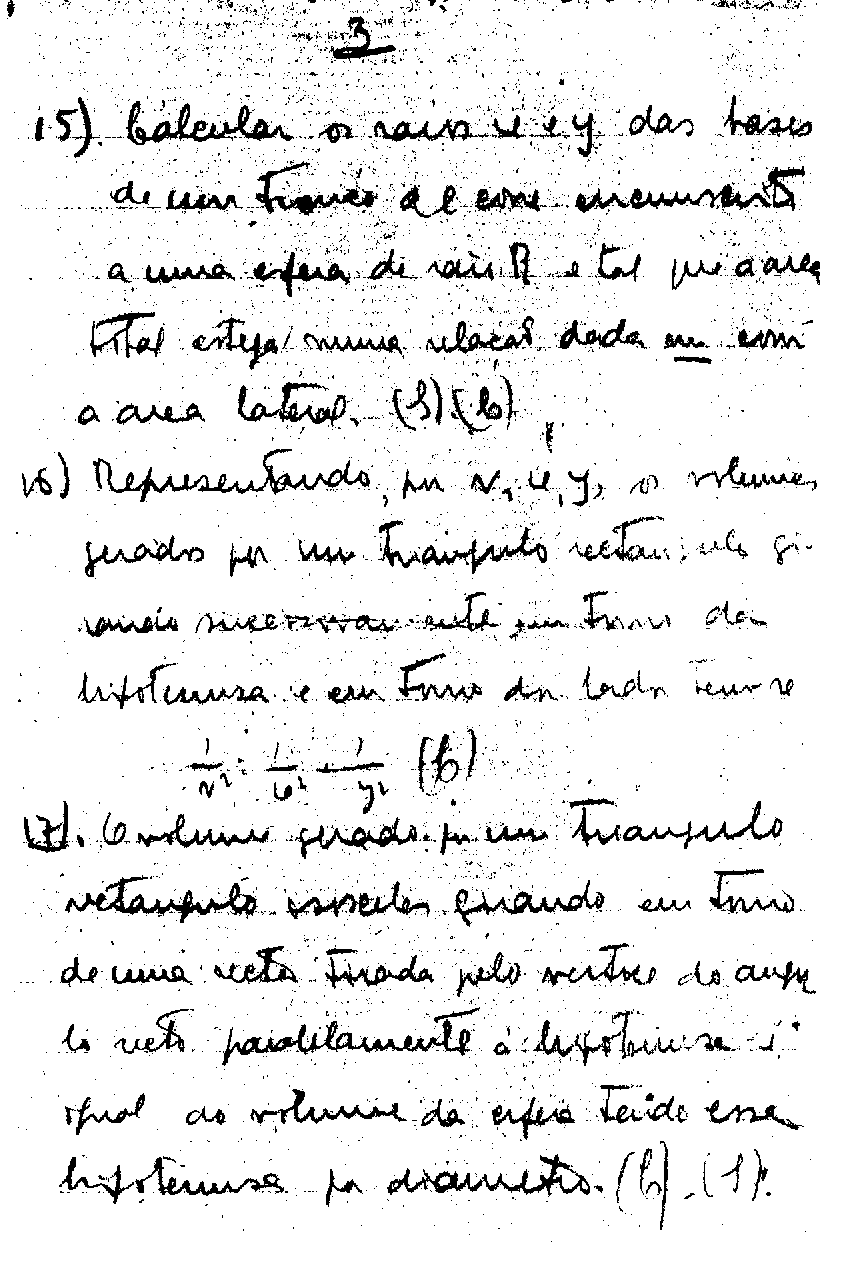 3
15). Calcular os raios x e y das bases
de um tronco de cone circunscrito
a uma esfera de raio R e tal que a area
total esteja numa relação dada m com
a area lateral. (S).(b)
16) Representando, por v, x, y, os volumes
gerados por um triangulo rectangulo gi-
rando successivamente em torno da
hipotenusa e em torno dos lados tem-se
1/v² = 1/x² + 1/y² (b)
17). O volume gerado por um triangulo
rectangulo isosceles girando em torno
de uma recta tirada pelo vertice do angu
lo recto paralelamente á hipotenusa é
igual ao volume da esfera tendo essa
hipotenusa por diametro. (b).(S).